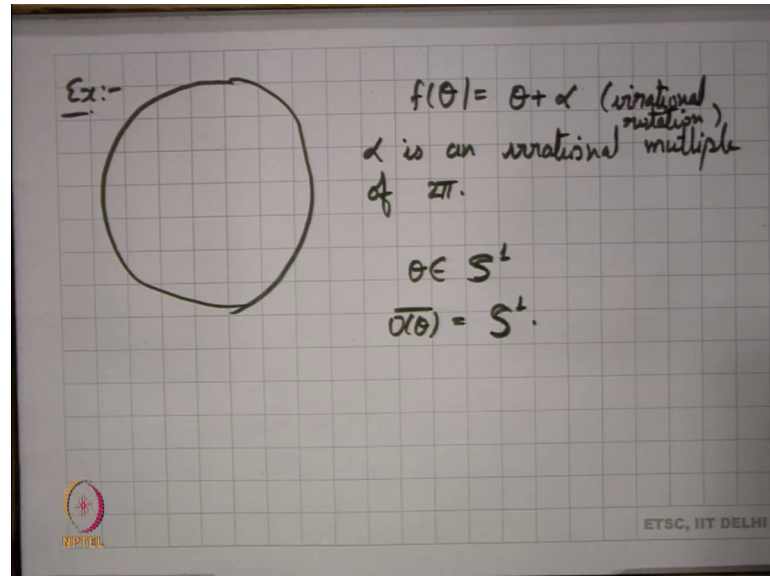 Ex:-
f(θ) = θ + α (irrational
rotation)
α is an irrational multiple
of 2π.
θ ∈ S¹
O(θ)‾ = S¹.
NPTEL
ETSC, IIT DELHI